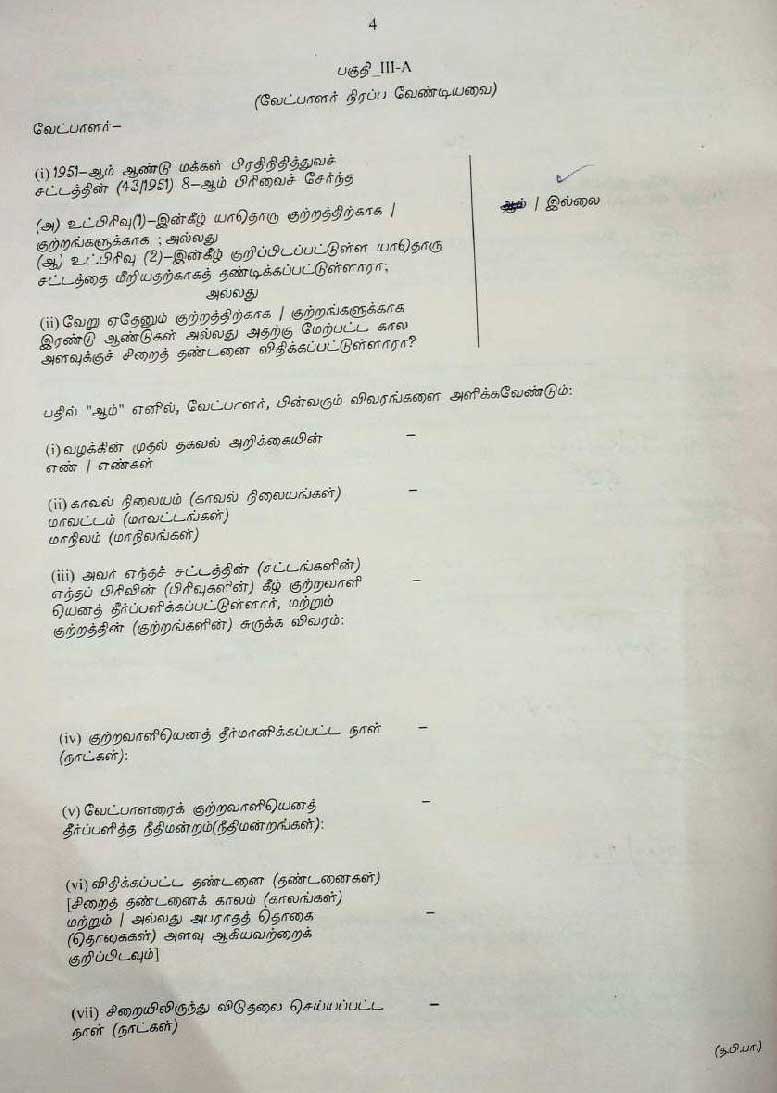 4
பகுதி_III-A
(வேட்பாளர் நிரப்ப வேண்டியவை)
வேட்பாளர்–
(i) 1951–ஆம் ஆண்டு மக்கள் பிரதிநிதித்துவச்
சட்டத்தின் (43/1951) 8–ஆம் பிரிவைச் சேர்ந்த
(அ) உட்பிரிவு(1)–இன்கீழ் யாதொரு குற்றத்திற்காக /
ஆம் / இல்லை
குற்றங்களுக்காக ; அல்லது
(ஆ) உட்பிரிவு (2)–இன்கீழ் குறிப்பிடப்பட்டுள்ள யாதொரு
சட்டத்தை மீறியதற்காகத் தண்டிக்கப்பட்டுள்ளாரா;
அல்லது
(ii) வேறு ஏதேனும் குற்றத்திற்காக / குற்றங்களுக்காக
இரண்டு ஆண்டுகள் அல்லது அதற்கு மேற்பட்ட கால
அளவுக்குச் சிறைத் தண்டனை விதிக்கப்பட்டுள்ளாரா?
பதில் "ஆம்" எனில், வேட்பாளர், பின்வரும் விவரங்களை அளிக்கவேண்டும்:
(i) வழக்கின் முதல் தகவல் அறிக்கையின் –
எண் / எண்கள்
(ii) காவல் நிலையம் (காவல் நிலையங்கள்) –
மாவட்டம் (மாவட்டங்கள்)
மாநிலம் (மாநிலங்கள்)
(iii) அவர் எந்தச் சட்டத்தின் (சட்டங்களின்)
எந்தப் பிரிவின் (பிரிவுகளின்) கீழ் குற்றவாளி –
யெனத் தீர்ப்பளிக்கப்பட்டுள்ளார், மற்றும்
குற்றத்தின் (குற்றங்களின்) சுருக்க விவரம்:
(iv) குற்றவாளியெனத் தீர்மானிக்கப்பட்ட நாள் –
(நாட்கள்):
(v) வேட்பாளரைக் குற்றவாளியெனத் –
தீர்ப்பளித்த நீதிமன்றம்(நீதிமன்றங்கள்):
(vi) விதிக்கப்பட்ட தண்டனை (தண்டனைகள்)
[சிறைத் தண்டனைக் காலம் (காலங்கள்)
மற்றும் / அல்லது அபராதத் தொகை –
(தொகைகள்) அளவு ஆகியவற்றைக்
குறிப்பிடவும்]
(vii) சிறையிலிருந்து விடுதலை செய்யப்பட்ட –
நாள் (நாட்கள்)
(த.பி.பா.)